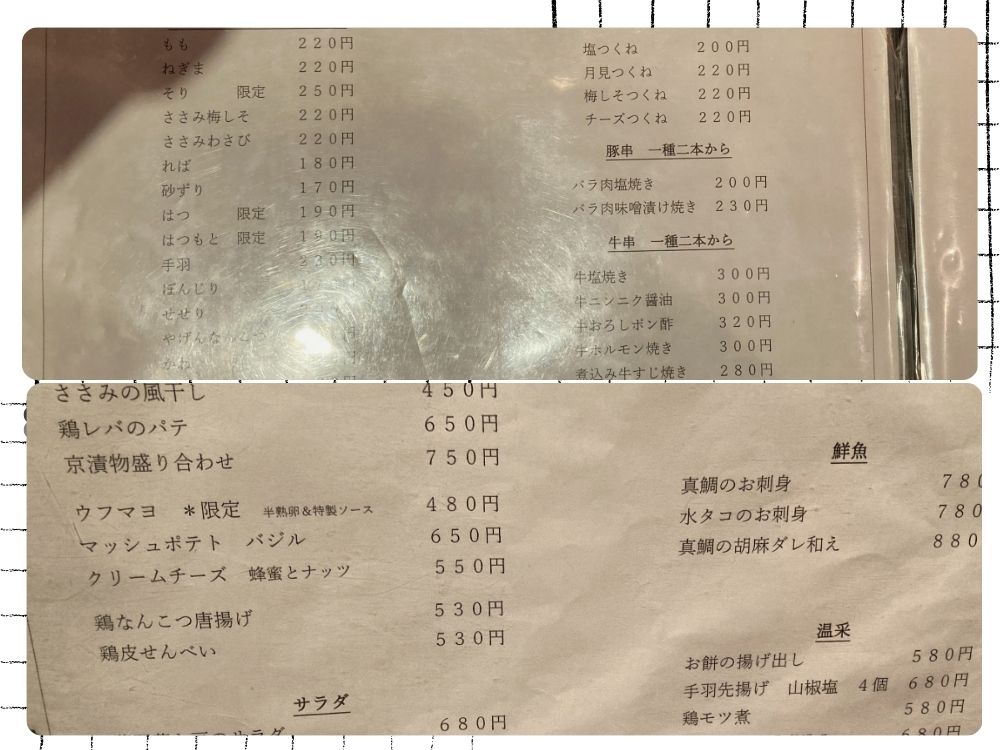 もも 220円
ねぎま 220円
そり 限定 250円
ささみ梅しそ 220円
ささみわさび 220円
ればー 180円
砂ずり 170円
はつ 限定 190円
はつもと 限定 190円
手羽 230円
ぼんじり
せせり
やげんなんこつ 円
かわ 円
塩つくね 200円
月見つくね 220円
梅しそつくね 220円
チーズつくね 220円
豚串 一種二本から
バラ肉塩焼き 200円
バラ肉味噌漬け焼き 230円
牛串 一種二本から
牛塩焼き 300円
牛ニンニク醤油 300円
牛おろしポン酢 320円
牛ホルモン焼き 300円
煮込み牛すじ焼き 280円
ささみの風干し 450円
鶏レバのパテ 650円
京漬物盛り合わせ 750円
ウフマヨ *限定 半熟卵&特製ソース 480円
マッシュポテト バジル 650円
クリームチーズ 蜂蜜とナッツ 550円
鶏なんこつ唐揚げ 530円
鶏皮せんべい 530円
サラダ
のサラダ 680円
鮮魚
真鯛のお刺身 780
水タコのお刺身 780
真鯛の胡麻ダレ和え 880
温采
お餅の揚げ出し 580円
手羽先揚げ 山椒塩 4個 680円
鶏モツ煮 580円
680円